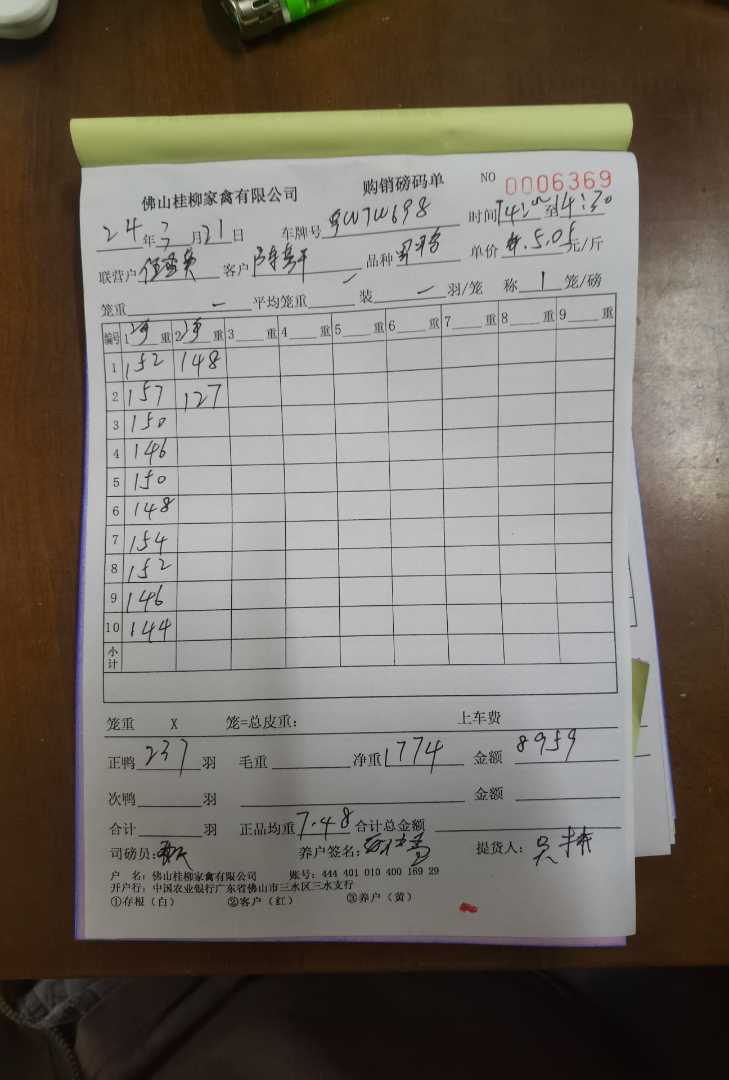 佛山桂柳家禽有限公司 购销磅码单 NO 0006369
24年 月21日 车牌号 时间14: 至14:30
联营户 客户 品种 单价 5.05元/斤
笼重 一 平均笼重 一 装 一 羽/笼 称 1 笼/磅
编号 1净重 2净重 3 重 4 重 5 重 6 重 7 重 8 重 9 重
1 152 148
2 157 127
3 150
4 146
5 150
6 148
7 154
8 152
9 146
10 144
小计
笼重 X 笼=总皮重: 上车费
正鸭 237 羽 毛重 净重 1774 金额 8959
次鸭 羽 金额
合计 羽 正品均重 7.48 合计总金额
司磅员: 养户签名: 提货人:
户 名: 佛山桂柳家禽有限公司 账号: 444 401 010 400 169 29
开户行: 中国农业银行广东省佛山市三水区三水支行
①存根(白) ②客户(红) ③养户(黄)